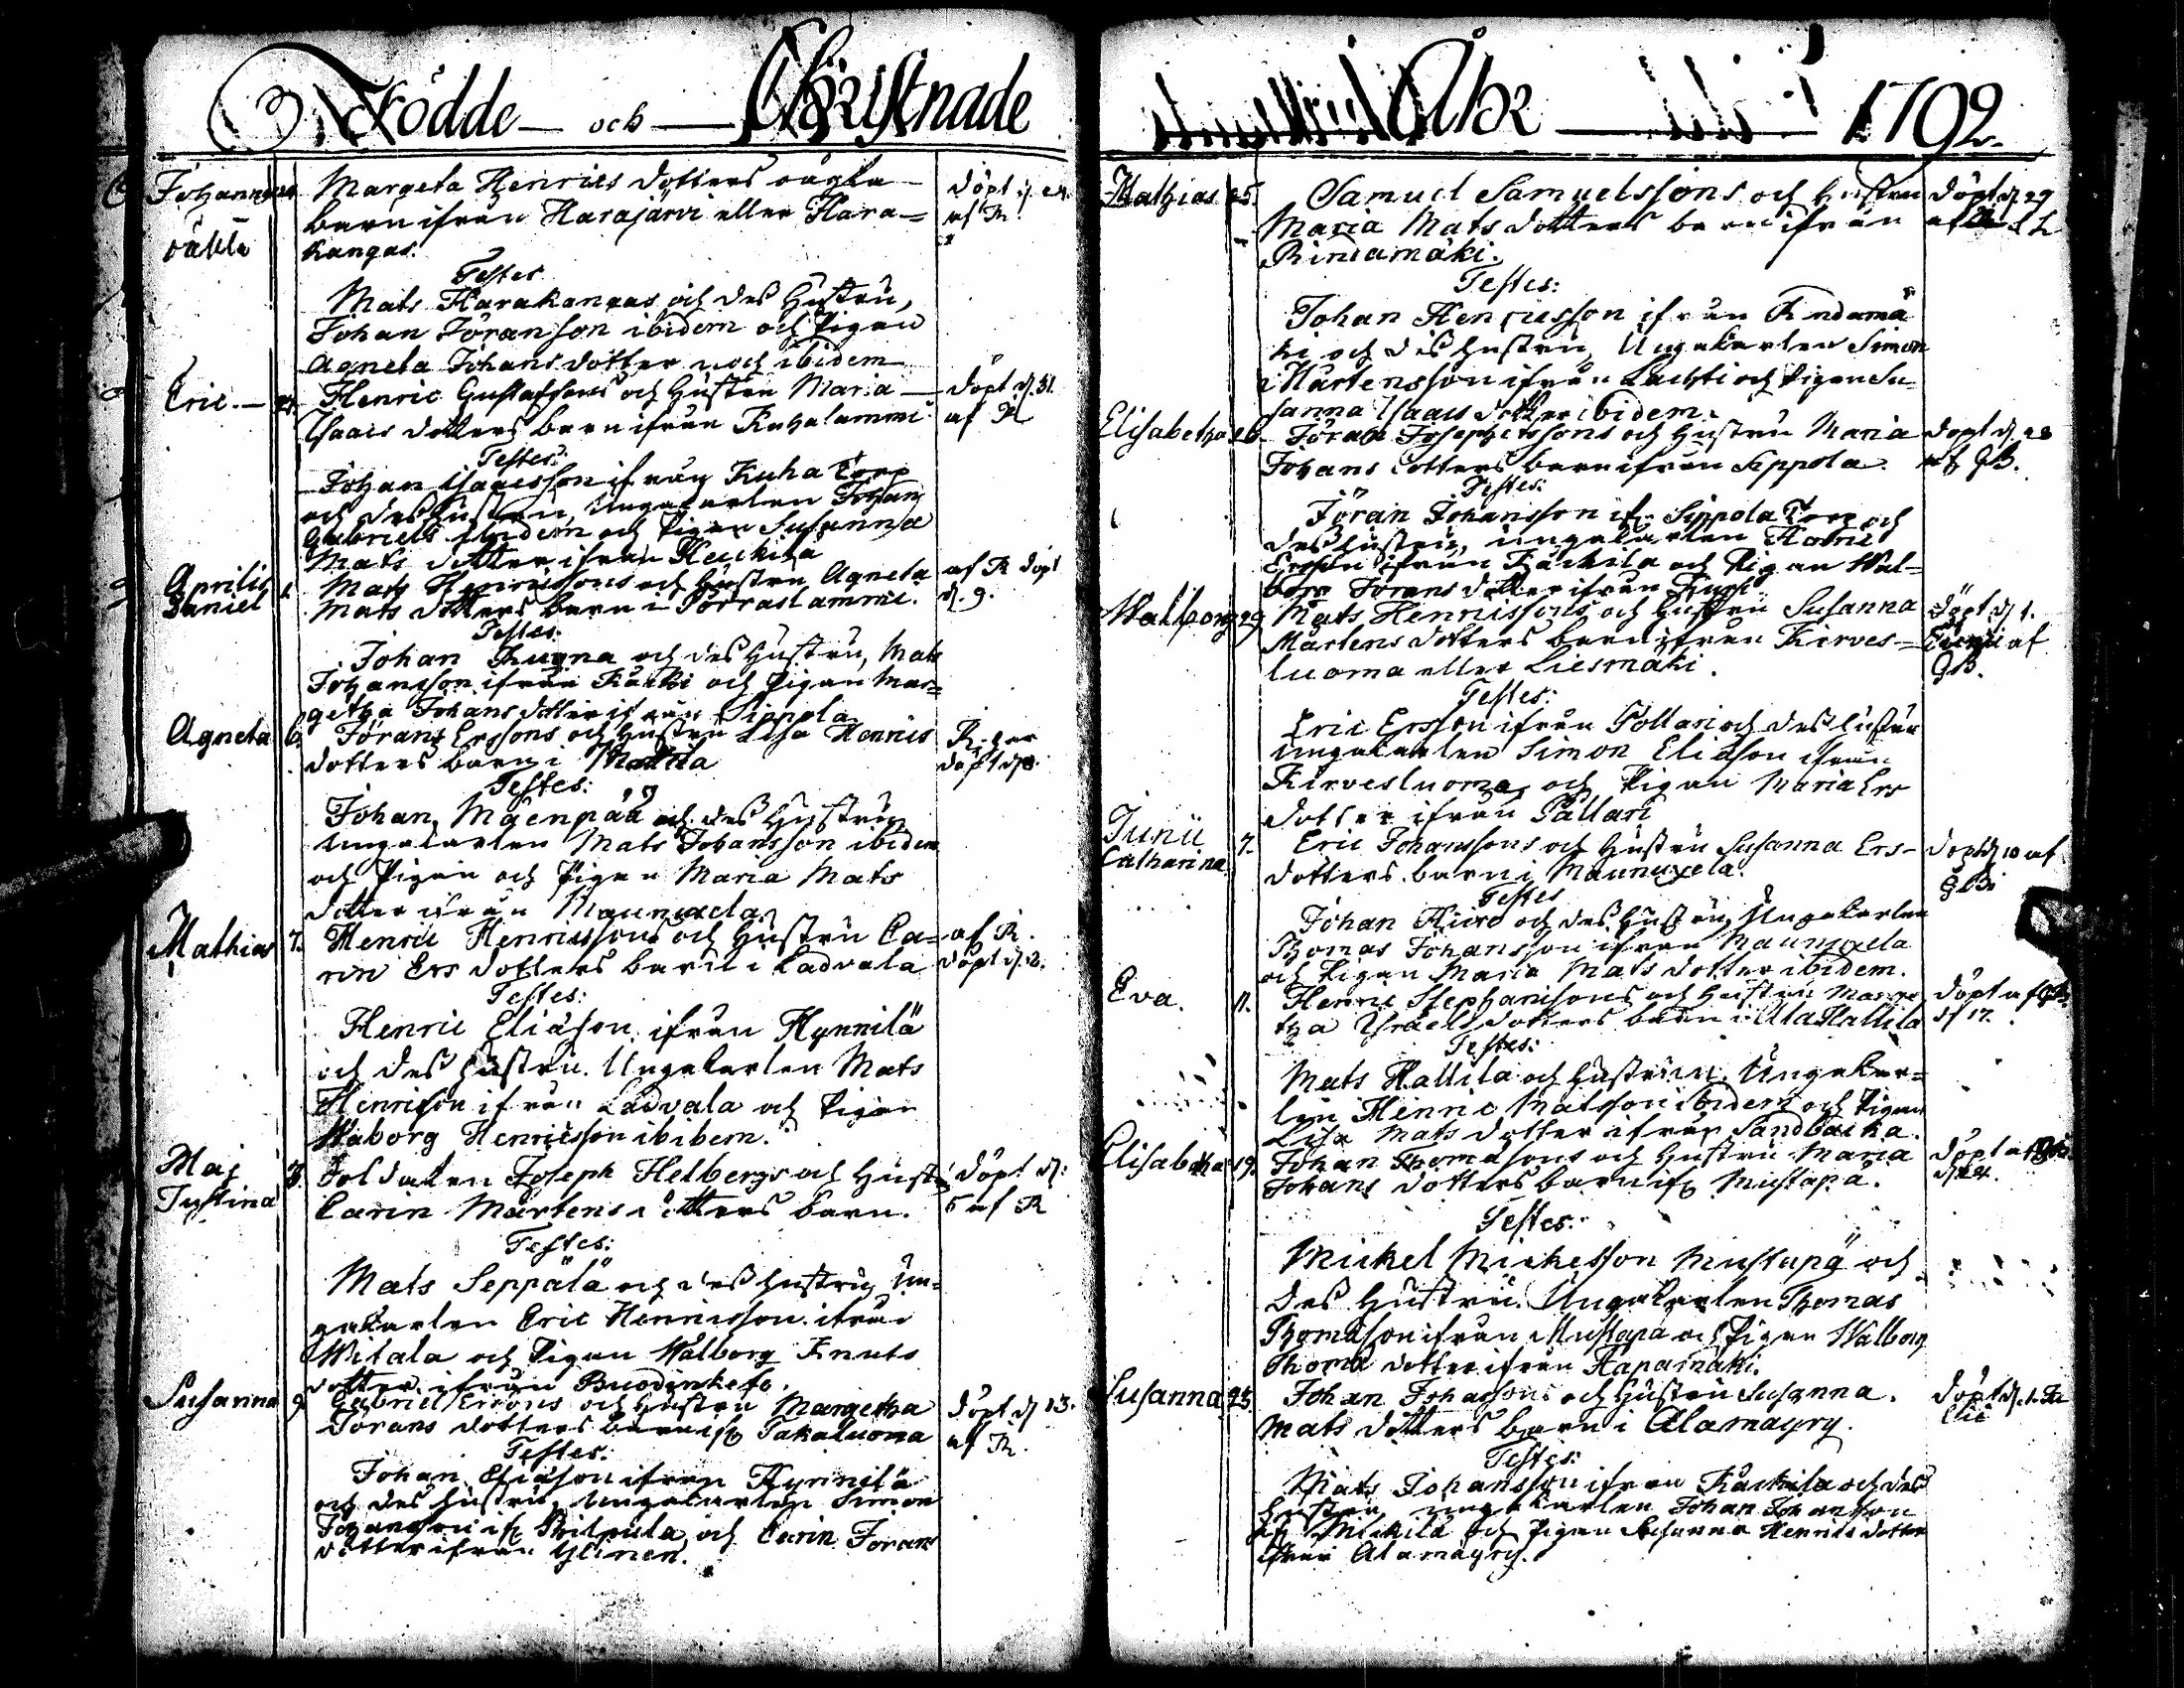 Födde och Christnade
Johannes
oäkta
Margeta Henrics dotters oägta
barn ifrån Harajärvi eller Hara=
kangas.
döpt d. 24.
af R
Testes
Mats Harakangas och des Hustru,
Johan Jöransson ibidem och Pigan
Agneta Johans dotter och ibidem
Eric 27. Henric Gustafsons och Hustru Maria
Isaacs dotters barn ifrån Kuhalammi
döpt d. 31.
af R
Testes:
Johan Isaacsson ifrån Kuha Torp
och des hustru, Ungakarlen Johan
Gabriels ibidem och Pigan Susanna
Mats dotter ifrån Heickila
Aprilis
Daniel 1. Mats Henricssons och Hustru Agneta
Mats dotters barn i Porraslammi.
af R döpt
d. 9.
Testes:
Johan Kugna och des Hustru, Mats
Johansson ifrån Kärki och Pigan Mar=
getha Johans dotter ifrån Sippola
Agneta 6. Jörans Erssons och Hustru Lisa Henrics
dotters barn i Mattila
döpt d. 8.
Testes:
Johan Mäenpää och des Hustru
Ungakarlen Mats Johansson ibidem
och Pigan och Pigan Maria Mats
dotter ifrån Maunuxela
Mathias 7. Henric Henricssons och Hustru Ca=
rin Ers dotters barn i Ladvala
af R.
döpt d. 12.
Testes:
Henric Eliason ifrån Hynnilä
och des hustru. Ungakarlen Mats
Henricson ifrån Ladvala och Pigan
Waborg Henricsson ibibem.
Maj
Justina 3. Soldaten Joseph Helbergs och Hustr
Carin Mårtens dotters barn.
döpt d.
5 af R
Testes:
Mats Seppälä och des hustru, Un=
gakarlen Eric Henricsson ifrån
Witala och Pigan Walborg Knuts
dotter ifrån Buodinkefo.
Susanna 9. Gabriel Ersons och Hustru Margetha
Jörans dotters barn ifr Takaluoma
döpt d. 13.
af R.
Testes:
Johan Eliason ifrån Hynnilä
och des hustru, Ungakarlen Simon
Johansson ifr Philpula och Carin Jörans
dotter ifrån Ylinen.
Åhr 1792.
Mathias 25. Samuel Samuelssons och hustru
Maria Mats dotters barn ifrån
Rintamäki.
döpt d. 29
Testes:
Johan Henricsson ifrån Rindamä
ki och des hustru, Ungakarlen Simon
Mårtensson ifrån Lachti och Pigan Su
sanna Isaacs dotter ibidem.
Elisabetha 26. Jöran Josephssons och Hustru Maria
Johans dotters barn ifrån Sippola
döpt d. 28
af GB.
Testes:
Jöran Johansson ifr Sippola Torp och
des hustru, ungakarlen Henric
Ersson ifrån Käckilä och Pigan Wal=
borg Jörans dotter ifrån
Walborg 29. Mats Henricssons och Hustru Susanna
Mårtens dotters barn ifrån Kirves=
luoma eller Liesmäki.
döpt d. 1.
af
GB.
Testes:
Eric Ersson ifrån Pollari och des hustru
Ungakarlen Simon Eliason ifrån
Kirvesluoma, och Pigan Maria Ers
dotter ifrån Pållari
Junii
Catharina 7. Eric Johanssons och Hustru Susanna Ers=
dotters barn i Maunuxela.
döpt d. 10 af
GB.
Testes
Johan Hiiro och des hustru, Ungakarlen
Thomas Johansson ifrån Maunuxela
och Pigan Maria Mats dotter ibidem.
Eva. 11. Henric Stephanssons och Hustru Marge
tha Israels dotters barn i Ala Hallila
döpt af GB.
d. 17.
Testes:
Mats Hallila och hustrun. Ungakar=
len Henric Matsson ibidem och Pigan
Lisa Mats dotter ifrån Sandbacka.
Elisabetha 19. Johan Thomasons och Hustru Maria
Johans dotters barn ifr Mustapä.
döpt af GB.
d. 24.
Testes:
Mickel Mickelsson Mustapä och
des Hustru. Ungakarlen Thomas
Thomason ifrån Mustapä och Pigan Walborg
Thoma dotter ifrån Hapamäki.
Susanna 23. Johan Johansons och Hustru Susanna.
Mats dotters barn i Alamayry.
döpt d. 1. Ju
lii
Testes:
Mats Johansson ifrån Käckilä och des
hustru ungakarlen Johan Johanson
ifr Mickilä och Pigan Susanna Henrics dotter
ifrån Alamayry.